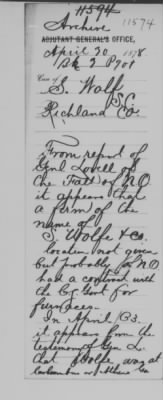 11594
11574
Archive
ADJUTANT GENERAL'S OFFICE,
April 30 1878
Bk 2 P 701
Case of
S. Wolfe
S.C.
Richland Co
From report of
Genl Lovell of
the Fall of N O
it appears that
a firm of the
name of
S Wolfe & Co.
location not given
but probably N O
had a contract with
the Cf Govt for
furnaces.
In April 63.
it appears from the
testimony of Gen L.
that Wolfe was at
or Athens Ga